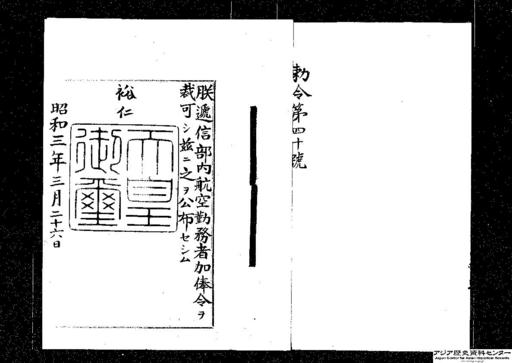 勅令第四十號
朕遞信部内航空勤務者加俸令ヲ
裁可シ茲ニ之ヲ公布セシム
裕仁
天皇御璽
昭和三年三月二十六日
アジア歴史資料センター
Japan Center for Asian Historical Records